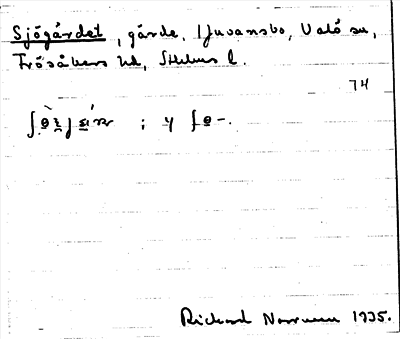 Sjögärdet, gärde, Ljuvansbo, Valö sn,
Frösåkers hd, Sthlms l.
74
; y
Rickard Norrman 1935.